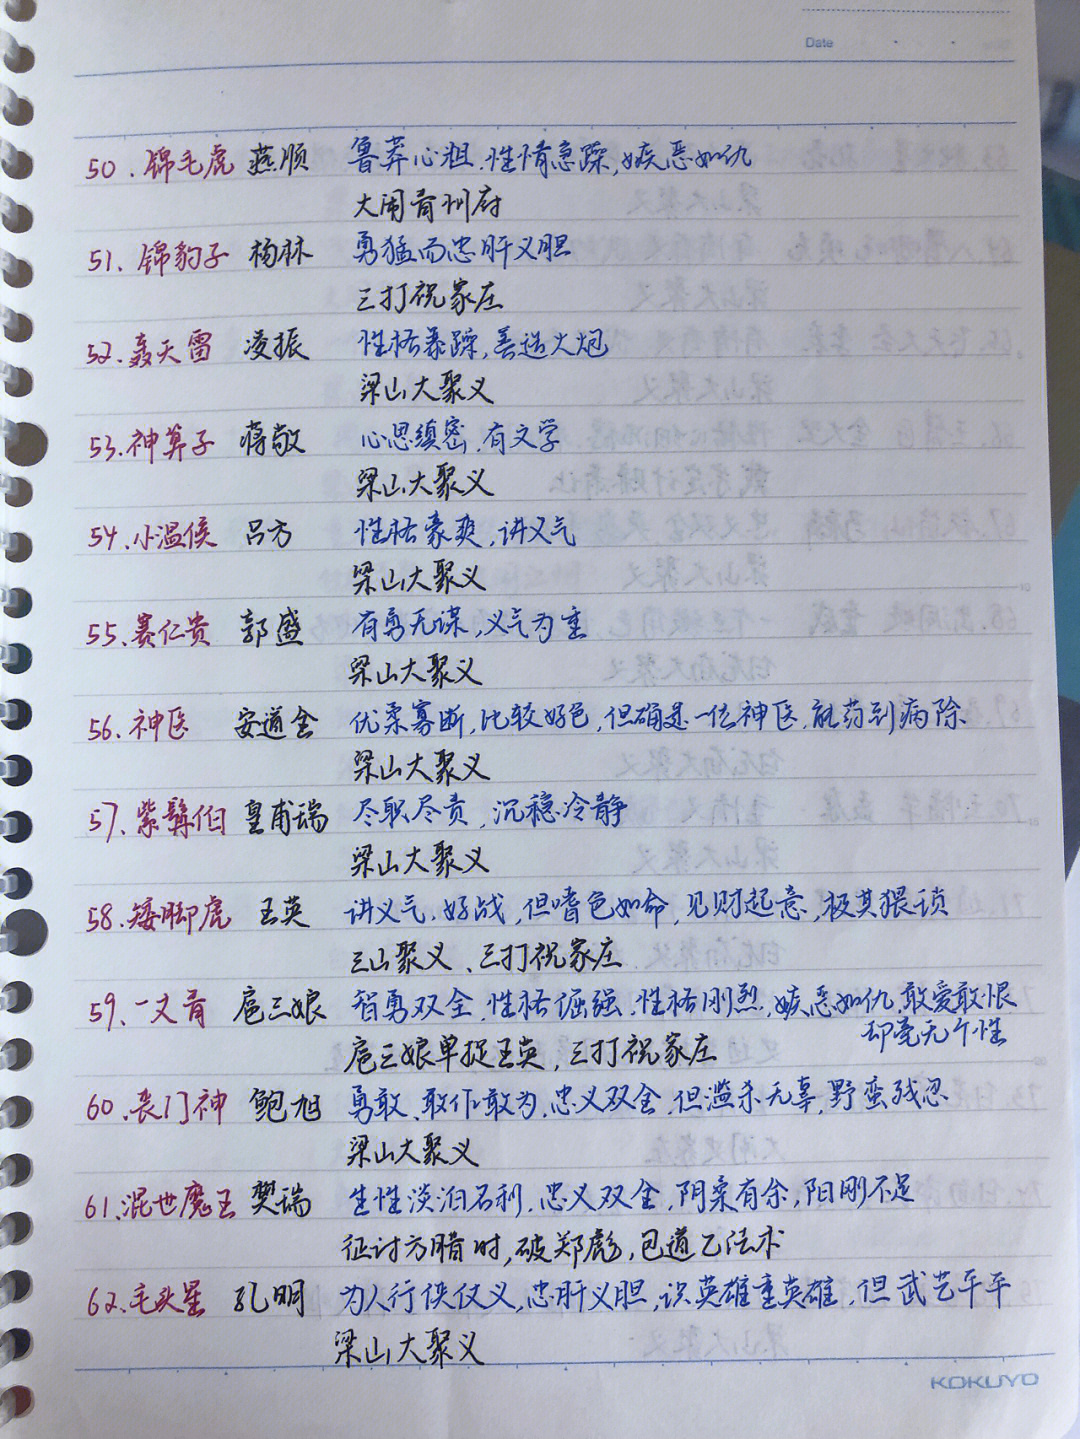 Date
50.锦毛虎 燕顺 鲁莽心粗.性情急躁,嫉恶如仇
大闹青州府
51.锦豹子 杨林 勇猛而忠肝义胆
三打祝家庄
52.轰天雷 凌振 性格暴躁,善造火炮
梁山大聚义
53.神算子 蒋敬 心思缜密.有文学
梁山大聚义
54.小温侯 吕方 性格豪爽,讲义气
梁山大聚义
55.赛仁贵 郭盛 有勇无谋,义气为重
梁山大聚义
56.神医 安道全 优柔寡断,比较好色,但确是一位神医.能药到病除.
梁山大聚义
57.紫髯伯 皇甫瑞 尽职尽责,沉稳冷静
梁山大聚义
58.矮脚虎 王英 讲义气.好战,但嗜色如命,见财起意,极其猥琐
三山聚义、三打祝家庄
59.一丈青 扈三娘 智勇双全.性格倔强.性格刚烈,嫉恶如仇.敢爱敢恨
却毫无个性
扈三娘单捉王英,三打祝家庄
60.丧门神 鲍旭 勇敢、敢作敢为,忠义双全,但滥杀无辜,野蛮残忍
梁山大聚义
61.混世魔王 樊瑞 生性淡泊名利.忠义双全,阴柔有余,阳刚不足
征讨方腊时,破郑彪,包道乙法术
62.毛头星 孔明 为人行侠仗义,忠肝义胆,识英雄重英雄.但武艺平平
梁山大聚义
KOKUYO